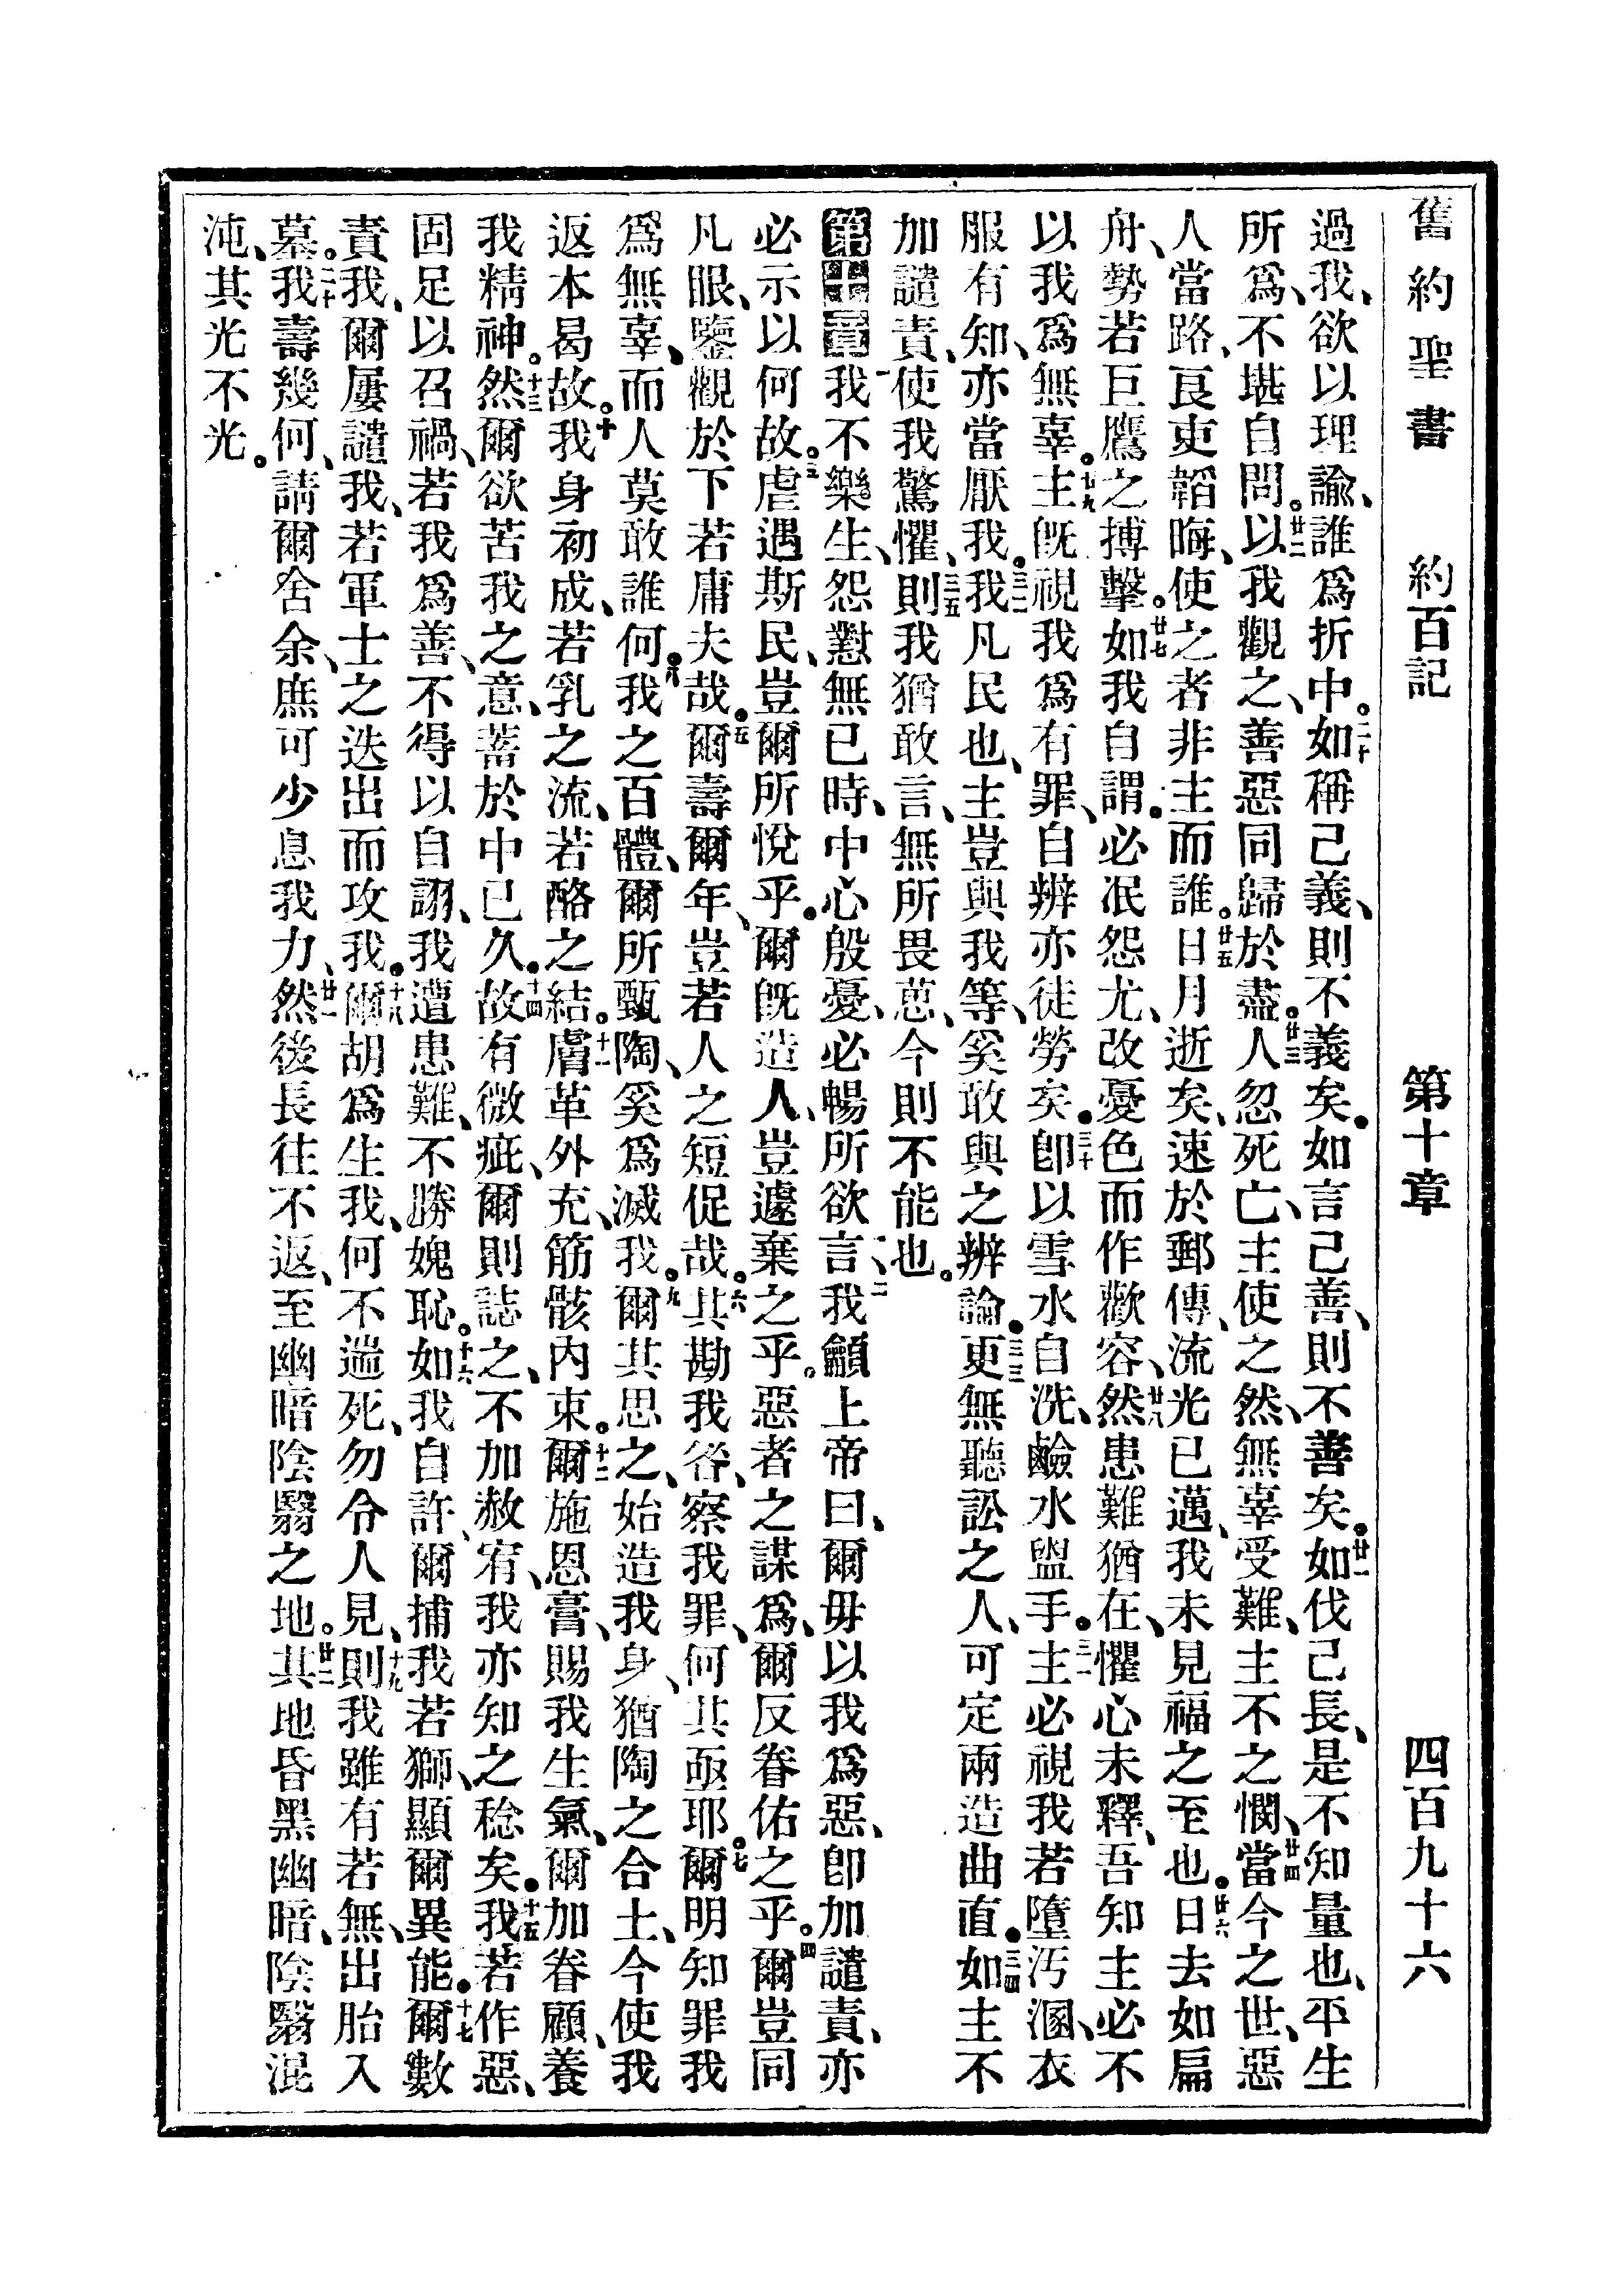 舊約聖書 約百記 第十章 四百九十六
過我、欲以理諭、誰爲折中。二十如稱己義、則不義矣。如言己善、則不善矣。廿一如伐己長、是不知量也、平生
所爲、不堪自問。廿二以我觀之、善惡同歸於盡。廿三人忽死亡、主使之然、無辜受難、主不之憫、廿四當今之世、惡
人當路、良吏韜晦、使之者非主而誰。廿五日月逝矣、速於郵傳、流光已邁、我未見福之至也。廿六日去如扁
舟、勢若巨鷹之搏擊。廿七如我自謂。必泯怨尤、改憂色而作歡容、廿八然患難猶在、懼心未釋、吾知主必不
以我爲無辜。廿九主旣視我爲有罪、自辨亦徒勞矣。三十卽以雪水自洗、鹼水盥手。三一主必視我若墮汚溷、衣
服有知、亦當厭我。三二我凡民也、主豈與我等、奚敢與之辨論。三三更無聽訟之人、可定兩造曲直。三四如主不
加譴責、使我驚懼、三五則我猶敢言、無所畏葸、今則不能也。
第十章一我不樂生、怨懟無已時、中心殷憂、必暢所欲言、二我籲上帝曰、爾毋以我爲惡、卽加譴責、亦
必示以何故。三虐遇斯民、豈爾所悅乎。爾旣造人、豈遽棄之乎。惡者之謀爲、爾反眷佑之乎。四爾豈同
凡眼、鑒觀於下若庸夫哉。五爾壽爾年、豈若人之短促哉。六其勘我咎、察我罪、何其亟耶。七爾明知罪我
爲無辜、而人莫敢誰何。八我之百體、爾所甄陶、奚爲滅我。九爾其思之、始造我身、猶陶之合土、今使我
返本曷故。十我身初成、若乳之流、若酪之結。十一膚革外充、筋骸內束。十二爾施恩膏、賜我生氣、爾加眷顧、養
我精神。十三然爾欲苦我之意、蓄於中已久。十四故有微疵、爾則誌之、不加赦宥、我亦知之稔矣。十五我若作惡、
固足以召禍、若我爲善、不得以自詡、我遭患難、不勝媿恥。十六如我自許、爾捕我若獅、顯爾異能。十七爾數
責我、爾屢譴我、若軍士之迭出而攻我。十八爾胡爲生我、何不遄死、勿令人見、十九則我雖有若無、出胎入
墓。二十我壽幾何、請爾舍余、庶可少息我力、廿一然後長往不返、至幽暗陰翳之地。廿二其地昏黑幽暗、陰翳混
沌、其光不光。